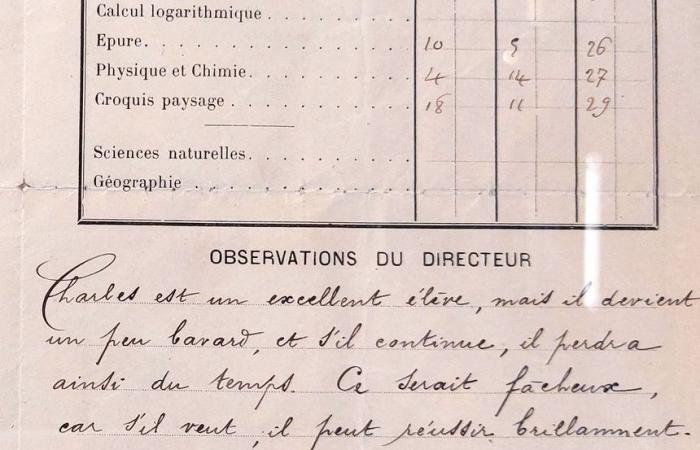 Calcul logarithmique . . . . . . . . .
Epure. . . . . . . . . . . . . . . 10 9 26
Physique et Chimie. . . . . . . . . . 4 14 27
Croquis paysage . . . . . . . . . . . 18 11 29
Sciences naturelles. . . . . . . . . .
Géographie . . . . . . . . . . . . .
OBSERVATIONS DU DIRECTEUR
Charles est un excellent élève, mais il devient
un peu bavard, et s'il continue, il perdra
ainsi du temps. Ce serait facheux,
car s'il veut, il peut réussir brillamment.